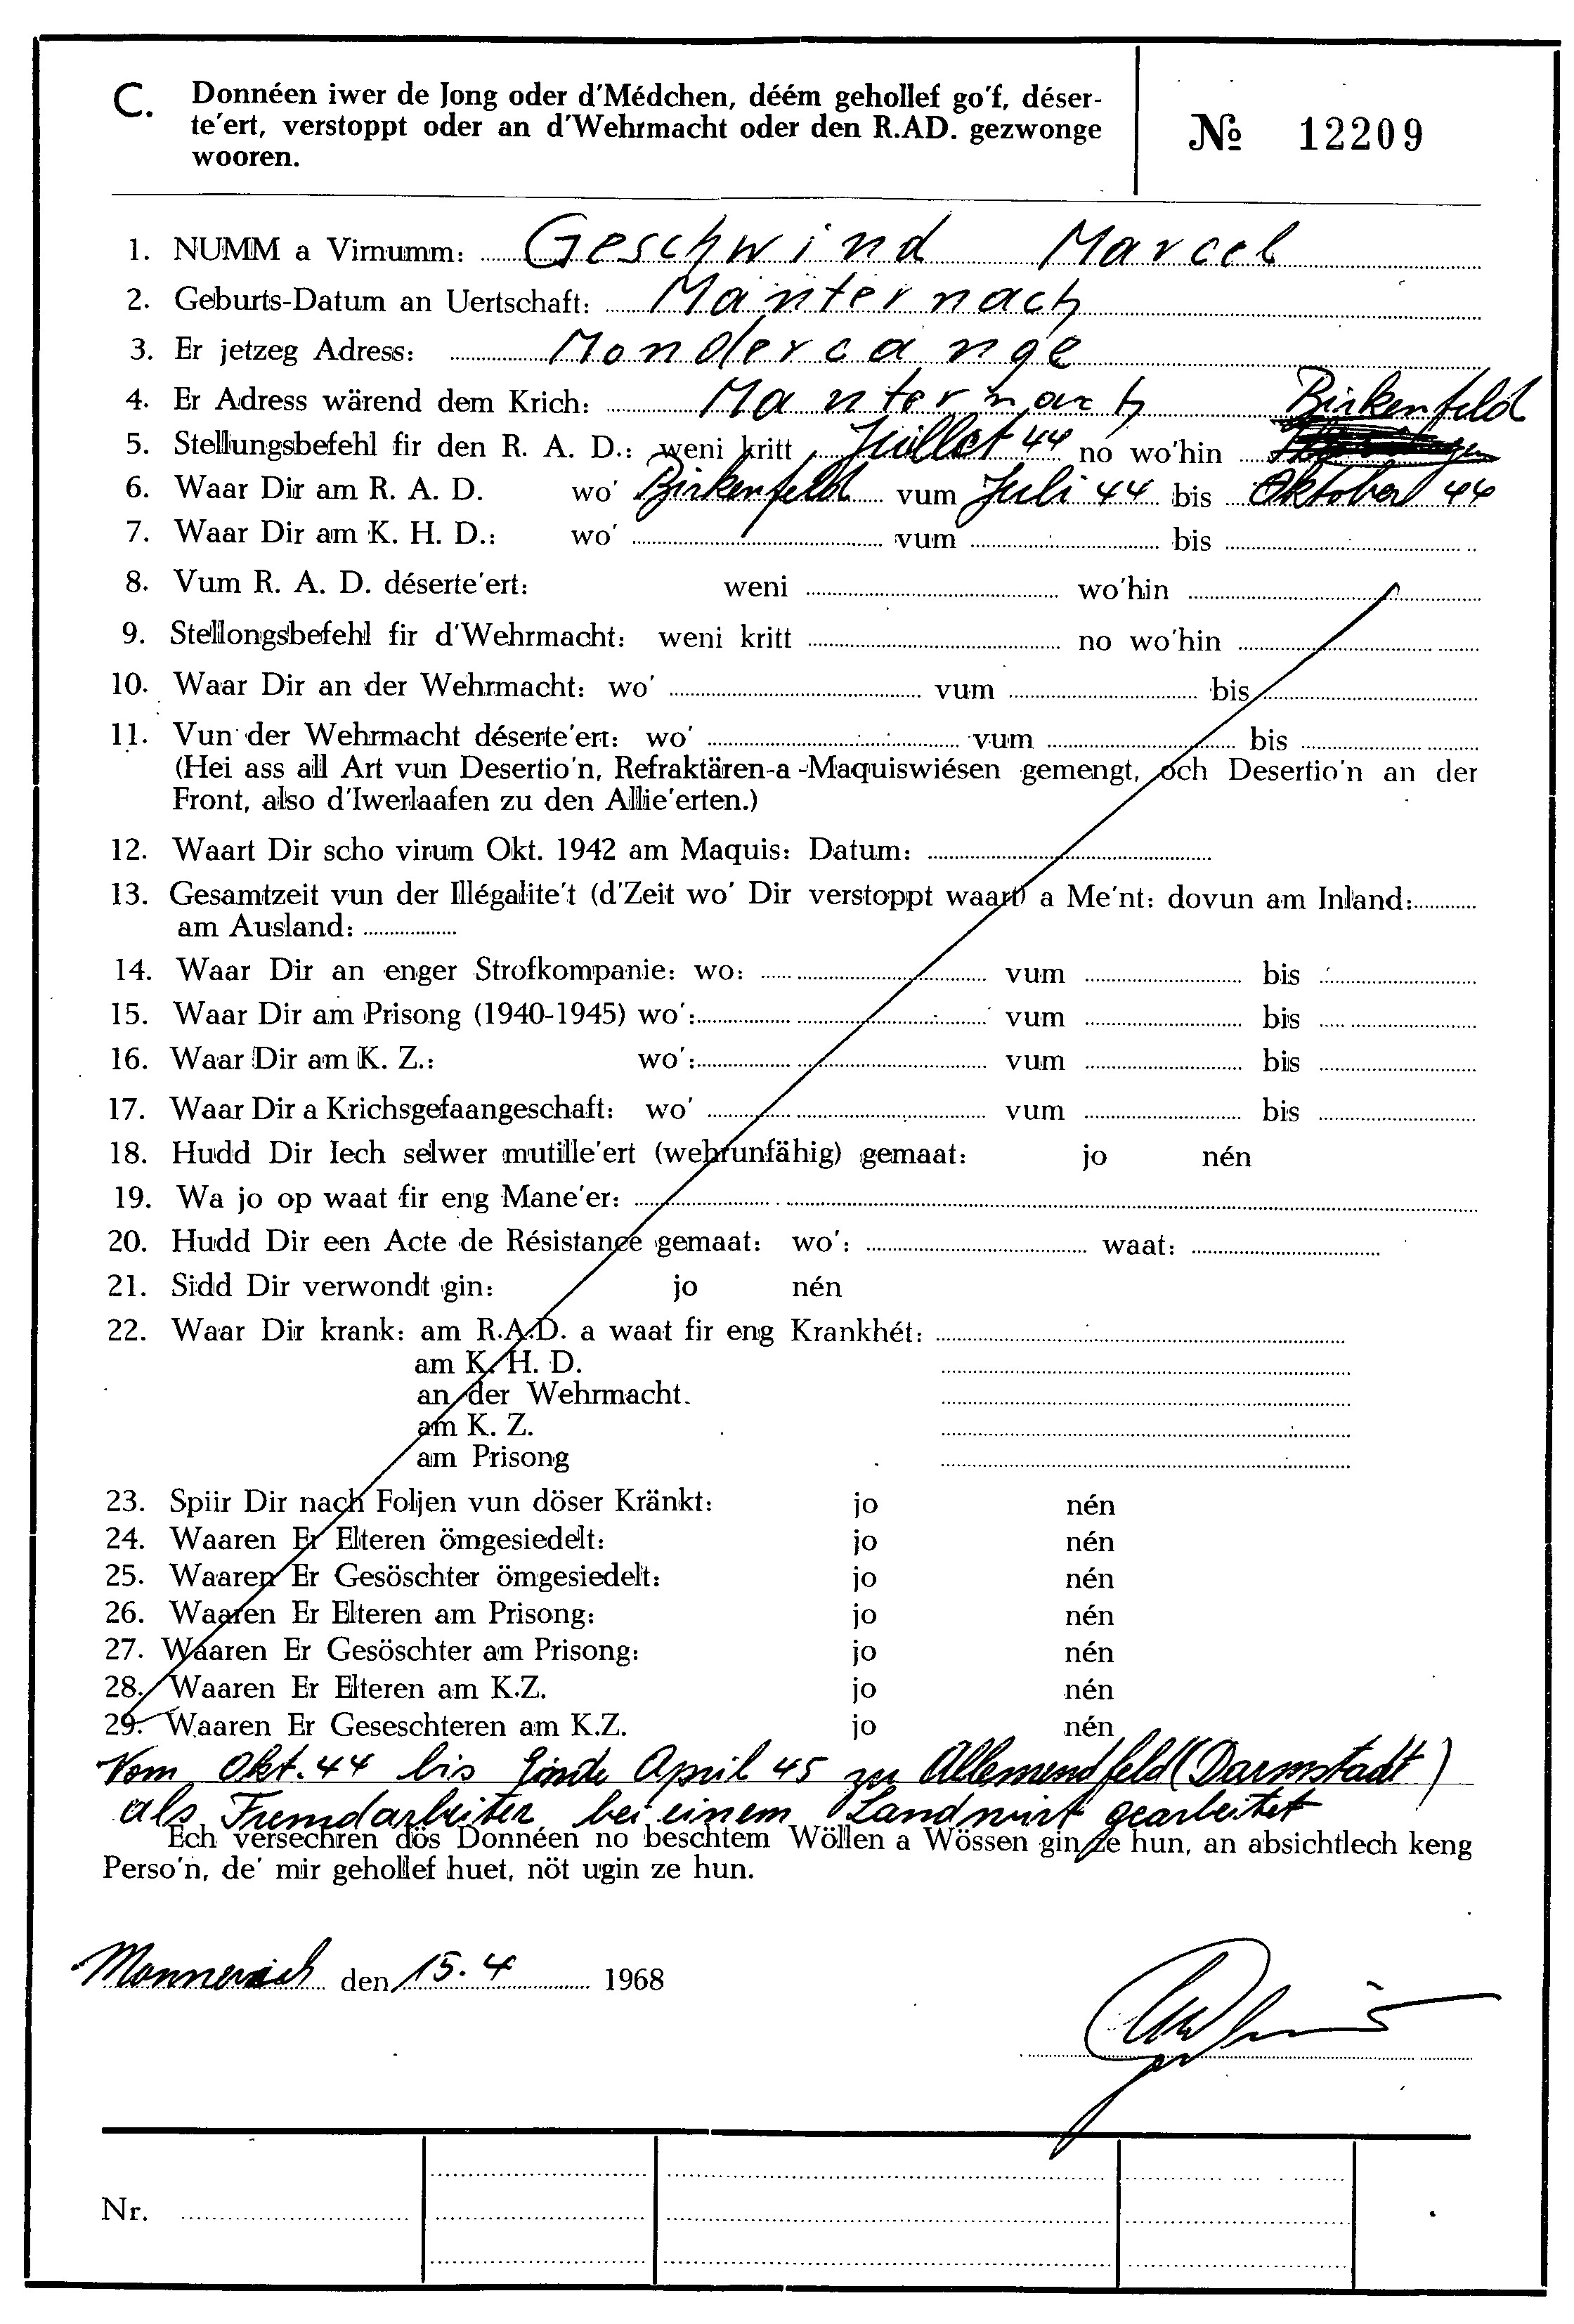 C. Donnéen iwer de Jong oder d'Médchen, déém gehollef go'f, déser-
te'ert, verstoppt oder an d'Wehrmacht oder den R.AD. gezwonge
wooren.
№ 12209
1. NUMM a Virnumm: Geschwind Marcel
2. Geburts-Datum an Uertschaft: Manternach
3. Er jetzeg Adress: Mondercange
4. Er Adress wärend dem Krich: Manternach Birkenfeld
5. Stellungsbefehl fir den R. A. D.: weni kritt Juillet 44 no wo'hin
6. Waar Dir am R. A. D. wo' Birkenfeld vum Juli 44 bis Oktober 44
7. Waar Dir am K. H. D.: wo' vum bis
8. Vum R. A. D. déserte'ert: weni wo'hin
9. Stellongsbefehl fir d'Wehrmacht: weni kritt no wo'hin
10. Waar Dir an der Wehrmacht: wo' vum bis
11. Vun der Wehrmacht déserte'ert: wo' vum bis
(Hei ass all Art vun Desertio'n, Refraktären-a-Maquiswiésen gemengt, och Desertio'n an der
Front, also d'Iwerlaafen zu den Allie'erten.)
12. Waart Dir scho virum Okt. 1942 am Maquis: Datum:
13. Gesamtzeit vun der Illégalite't (d'Zeit wo' Dir verstoppt waart) a Me'nt: dovun am Inland:
am Ausland:
14. Waar Dir an enger Strofkompanie: wo: vum bis
15. Waar Dir am Prisong (1940-1945) wo': vum bis
16. Waar Dir am K. Z.: wo': vum bis
17. Waar Dir a Krichsgefaangeschaft: wo' vum bis
18. Hudd Dir Iech selwer mutille'ert (wehrunfähig) gemaat: jo nén
19. Wa jo op waat fir eng Mane'er:
20. Hudd Dir een Acte de Résistance gemaat: wo': waat:
21. Sidd Dir verwondt gin: jo nén
22. Waar Dir krank: am R.A.D. a waat fir eng Krankhét:
am K. H. D.
an der Wehrmacht.
am K. Z.
am Prisong
23. Spiir Dir nach Foljen vun döser Kränkt: jo nén
24. Waaren Er Elteren ömgesiedelt: jo nén
25. Waaren Er Gesöschter ömgesiedelt: jo nén
26. Waaren Er Elteren am Prisong: jo nén
27. Waaren Er Gesöschter am Prisong: jo nén
28. Waaren Er Elteren am K.Z. jo nén
29. Waaren Er Geseschteren am K.Z. jo nén
Vom Okt. 44 bis Ende April 45 zu Allemendfeld (Darmstadt)
als Fremdarbeiter bei einem Landwirt gearbeitet
Ech versechren dös Donnéen no beschtem Wöllen a Wössen gin ze hun, an absichtlech keng
Perso'n, de' mir gehollef huet, nöt ugin ze hun.
Monnerich den 15. 4 1968
Nr.